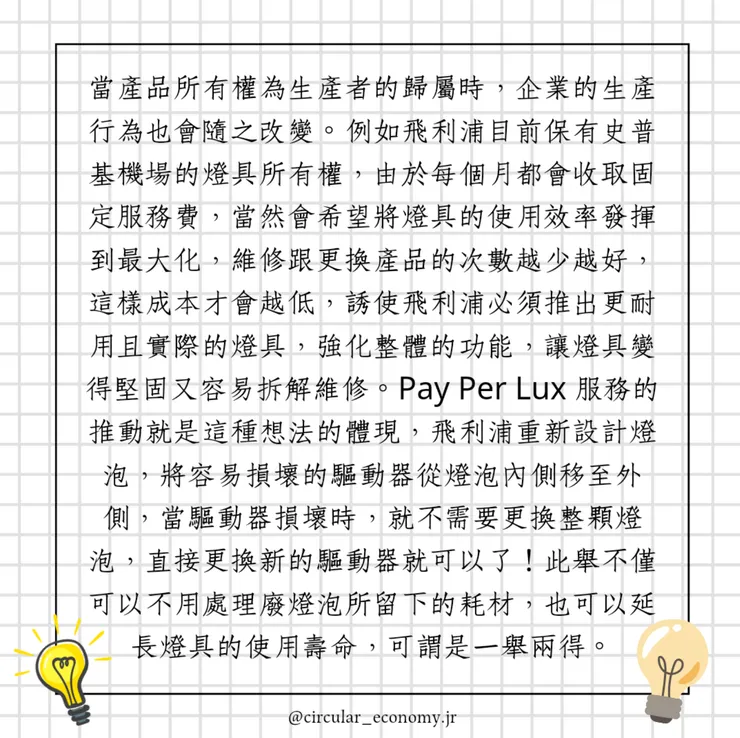 當產品所有權為生產者的歸屬時，企業的生產
行為也會隨之改變。例如飛利浦目前保有史普
基機場的燈具所有權，由於每個月都會收取固
定服務費，當然會希望將燈具的使用效率發揮
到最大化，維修跟更換產品的次數越少越好，
這樣成本才會越低，誘使飛利浦必須推出更耐
用且實際的燈具，強化整體的功能，讓燈具變
得堅固又容易拆解維修。Pay Per Lux 服務的
推動就是這種想法的體現，飛利浦重新設計燈
泡，將容易損壞的驅動器從燈泡內側移至外
側，當驅動器損壞時，就不需要更換整顆燈
泡，直接更換新的驅動器就可以了！此舉不僅
可以不用處理廢燈泡所留下的耗材，也可以延
長燈具的使用壽命，可謂是一舉兩得。
@circular_economy.jr